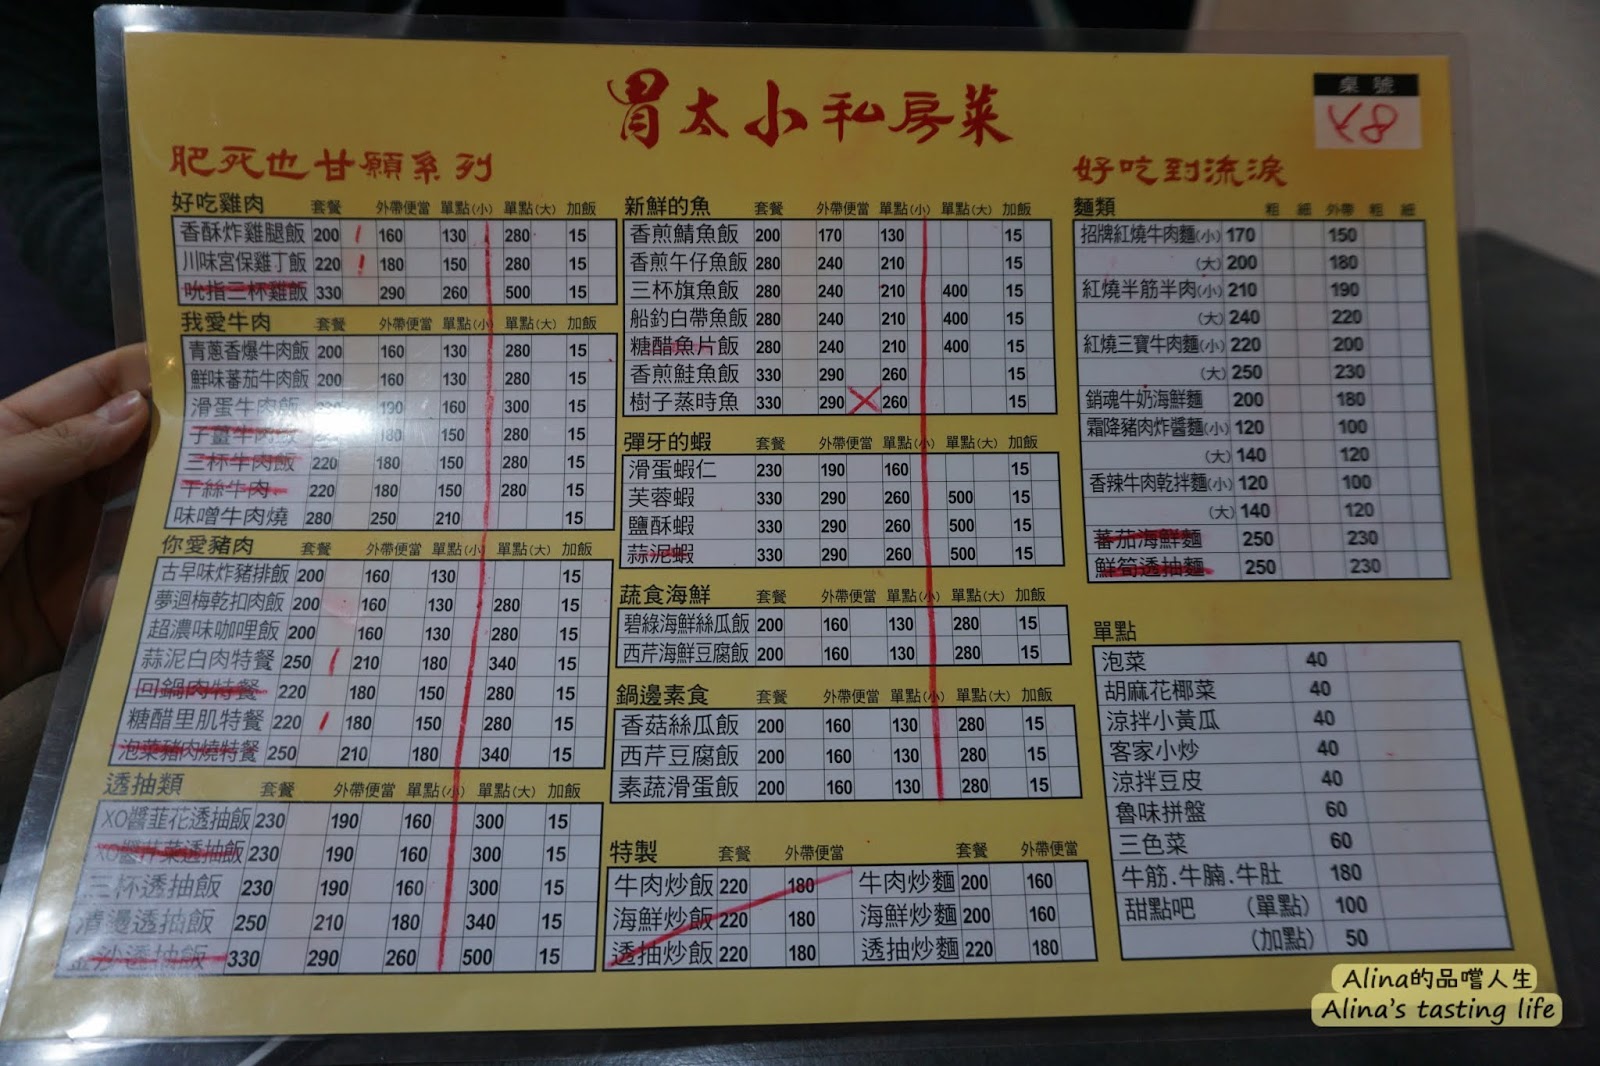 胃太小私房菜
桌號
K8
肥死也甘願系列
好吃雞肉 套餐 外帶便當 單點(小) 單點(大) 加飯
香酥炸雞腿飯 200 160 130 280 15
川味宮保雞丁飯 220 180 150 280 15
吮指三杯雞飯 330 290 260 500 15
我愛牛肉 套餐 外帶便當 單點(小) 單點(大) 加飯
青蔥香爆牛肉飯 200 160 130 280 15
鮮味蕃茄牛肉飯 200 160 130 280 15
滑蛋牛肉飯 190 160 300 15
子薑牛肉飯 180 150 280 15
三杯牛肉飯 220 180 150 280 15
干絲牛肉 220 180 150 280 15
味噌牛肉燒 280 250 210 15
你愛豬肉 套餐 外帶便當 單點(小) 單點(大) 加飯
古早味炸豬排飯 200 160 130 15
夢迴梅乾扣肉飯 200 160 130 280 15
超濃味咖哩飯 200 160 130 280 15
蒜泥白肉特餐 250 210 180 340 15
回鍋肉特餐 220 180 150 280 15
糖醋里肌特餐 220 180 150 280 15
泡菜豬肉燒特餐 250 210 180 340 15
透抽類 套餐 外帶便當 單點(小) 單點(大) 加飯
XO醬韮花透抽飯 230 190 160 300 15
XO醬芹菜透抽飯 230 190 160 300 15
三杯透抽飯 230 190 160 300 15
清燙透抽飯 250 210 180 340 15
金沙透抽飯 330 290 260 500 15
新鮮的魚 套餐 外帶便當 單點(小) 單點(大) 加飯
香煎鯖魚飯 200 170 130 15
香煎午仔魚飯 280 240 210 15
三杯旗魚飯 280 240 210 400 15
船釣白帶魚飯 280 240 210 400 15
糖醋魚片飯 280 240 210 400 15
香煎鮭魚飯 330 290 260 15
樹子蒸時魚 330 290 260 15
彈牙的蝦 套餐 外帶便當 單點(小) 單點(大) 加飯
滑蛋蝦仁 230 190 160 15
芙蓉蝦 330 290 260 500 15
鹽酥蝦 330 290 260 500 15
蒜泥蝦 330 290 260 500 15
蔬食海鮮 套餐 外帶便當 單點(小) 單點(大) 加飯
碧綠海鮮絲瓜飯 200 160 130 280 15
西芹海鮮豆腐飯 200 160 130 280 15
鍋邊素食 套餐 外帶便當 單點(小) 單點(大) 加飯
香菇絲瓜飯 200 160 130 280 15
西芹豆腐飯 200 160 130 280 15
素蔬滑蛋飯 200 160 130 280 15
特製 套餐 外帶便當 套餐 外帶便當
牛肉炒飯 220 180 牛肉炒麵 200 160
海鮮炒飯 220 180 海鮮炒麵 200 160
透抽炒飯 220 180 透抽炒麵 220 180
好吃到流淚
麵類 粗 細 外帶 粗 細
招牌紅燒牛肉麵(小) 170 150
(大) 200 180
紅燒半筋半肉(小) 210 190
(大) 240 220
紅燒三寶牛肉麵(小) 220 200
(大) 250 230
銷魂牛奶海鮮麵 200 180
霜降豬肉炸醬麵(小) 120 100
(大) 140 120
香辣牛肉乾拌麵(小) 120 100
(大) 140 120
蕃茄海鮮麵 250 230
鮮筍透抽麵 250 230
單點
泡菜 40
胡麻花椰菜 40
涼拌小黃瓜 40
客家小炒 40
涼拌豆皮 40
魯味拼盤 60
三色菜 60
牛筋.牛腩.牛肚 180
甜點吧 (單點) 100
(加點) 50
Alina的品嚐人生
Alina's tasting life